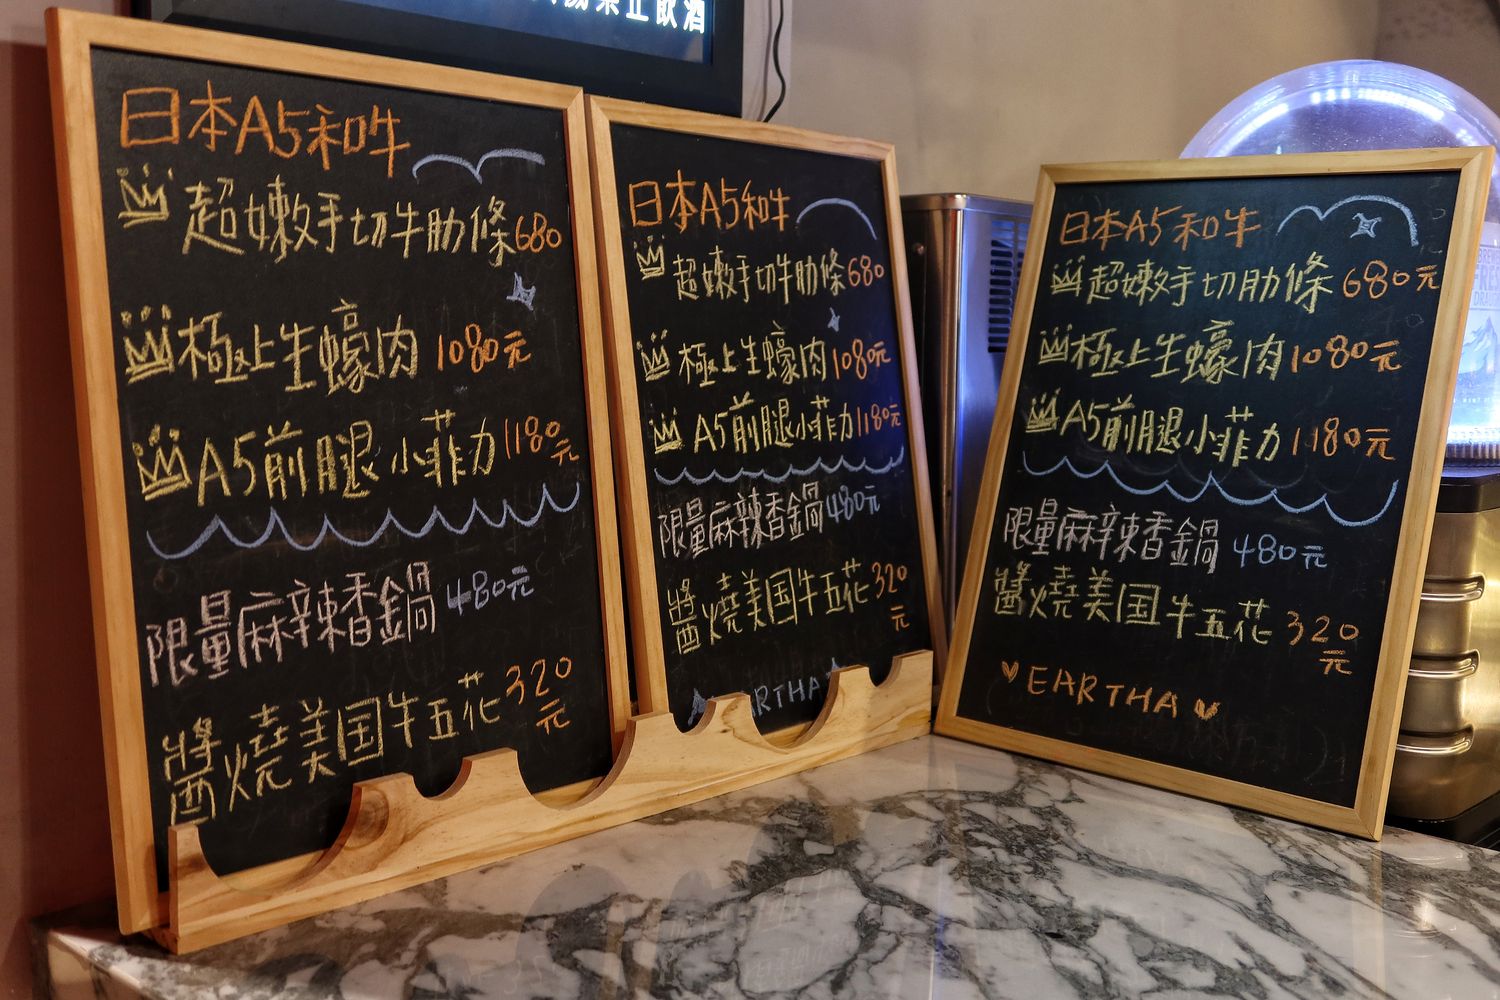 禁止飲酒
日本A5和牛
超嫩手切牛肋條680
極上生蠔肉 1080元
A5前腿小菲力1180元
限量麻辣香鍋480元
醬燒美国牛五花320
元
日本A5和牛
超嫩手切牛肋條680
極上生蠔肉1080元
A5前腿小菲力1180元
限量麻辣香鍋480元
醬燒美国牛五花320
元
EARTHA
日本A5和牛
超嫩手切肋條 680元
極上生蠔肉1080元
A5前腿小菲力1180元
限量麻辣香鍋 480元
醬燒美国牛五花 320
元
EARTHA